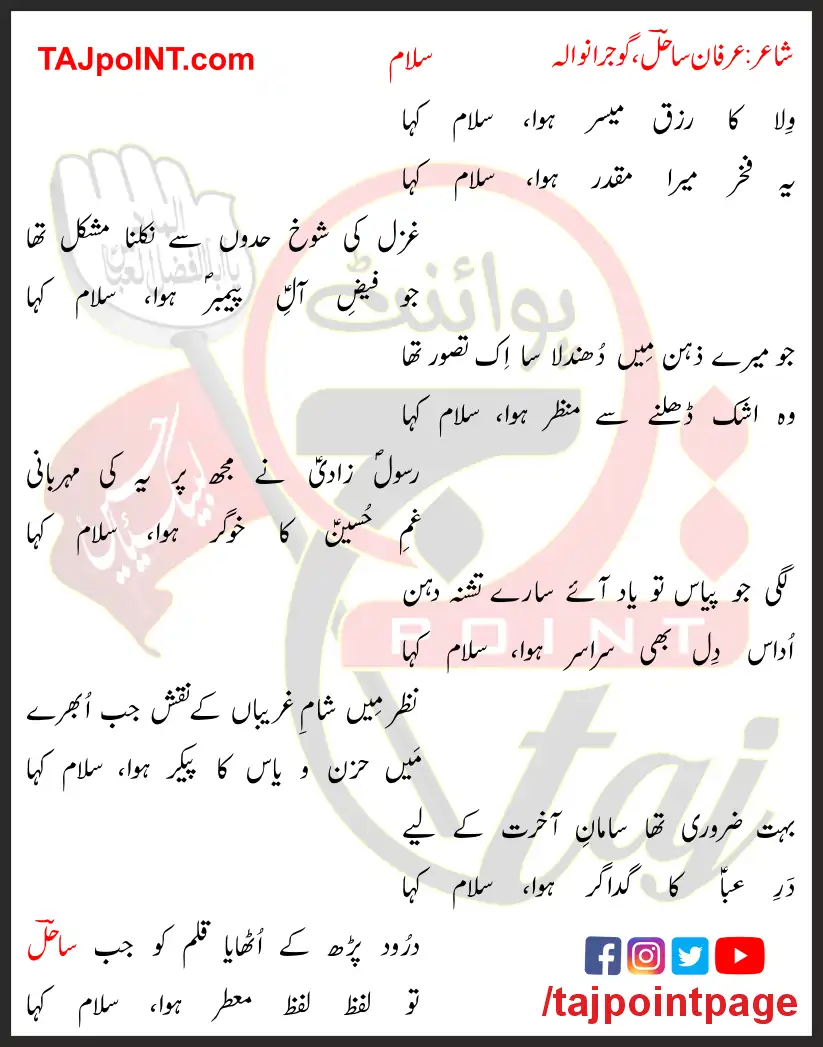 شاعر: عرفان ساحلؔ، گوجرانوالہ
سلام
TAJpoINT.com
وِلا کا رزق میسر ہوا، سلام کہا
یہ فخر میرا مقدر ہوا، سلام کہا
غزل کی شوخ حدوں سے نکلنا مشکل تھا
جو فیضِ آلِؑ پیمبرؐ ہوا، سلام کہا
جو میرے ذہن مِیں دُھندلا سا اِک تصور تھا
وہ اشک ڈھلنے سے منظر ہوا، سلام کہا
رسولؐ زادیؑ نے مجھ پر یہ کی مہربانی
غمِ حُسینؑ کا خوگر ہوا، سلام کہا
لگی جو پیاس تو یاد آئے سارے تشنہ دہن
اُداس دِل بھی سراسر ہوا، سلام کہا
نظر مِیں شامِ غریباں کے نقش جب اُبھرے
مَیں حزن و یاس کا پیکر ہوا، سلام کہا
بہت ضروری تھا سامانِ آخرت کے لیے
دَرِ عباؑ کا گداگر ہوا، سلام کہا
درُود پڑھ کے اُٹھایا قلم کو جب ساحلؔ
تو لفظ لفظ معطر ہوا، سلام کہا
/tajpointpage
پوائنٹ
تاج
POINT
taj
لبیک یا حسین